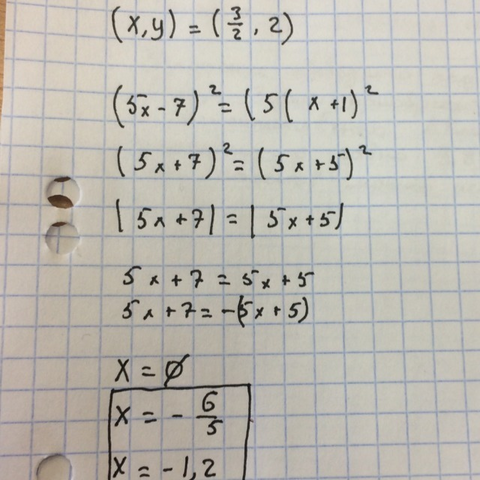 (x,y) = (3/2, 2)
(5x-7)² = (5( x+1)²
(5x+7)² = (5x+5)²
|5x+7| = |5x+5|
5x+7 = 5x+5
5x+7 = -(5x+5)
x = ∅
x = -6/5
x = -1,2